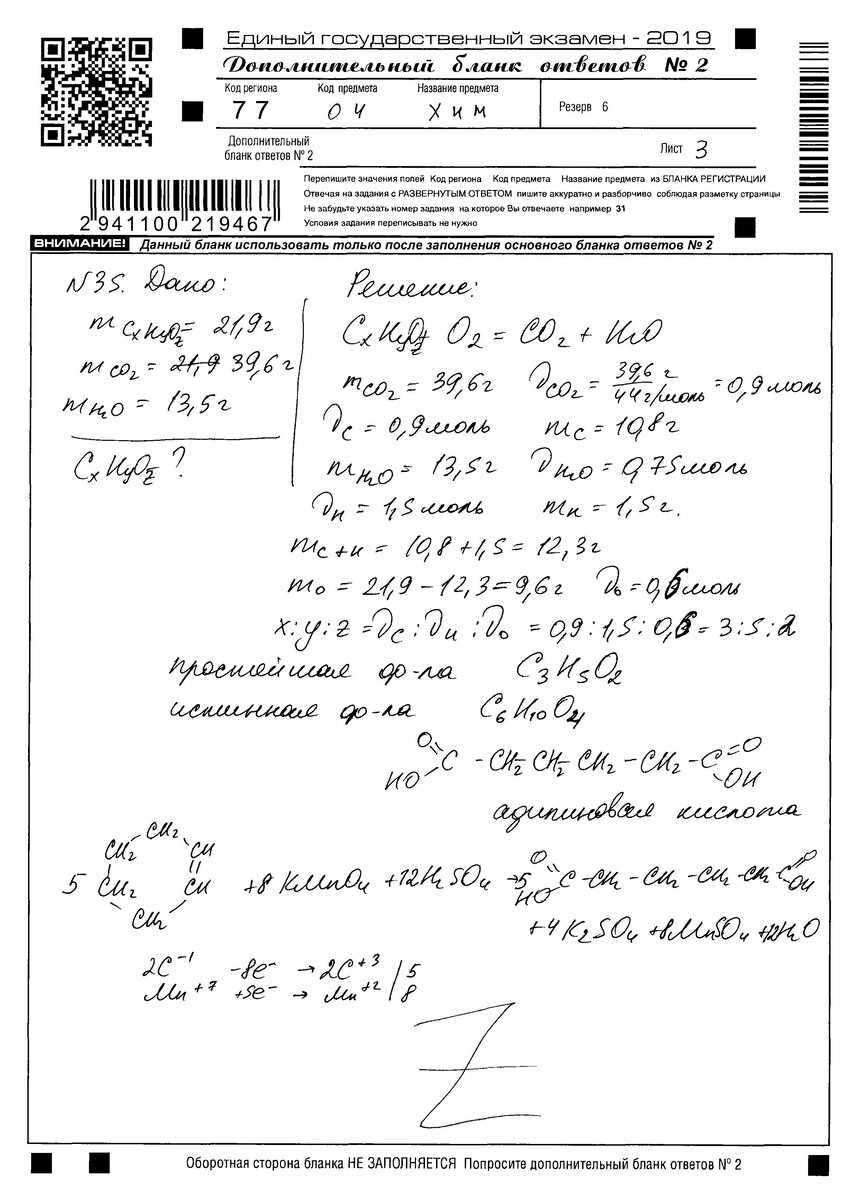 Единый государственный экзамен - 2019
Дополнительный бланк ответов № 2
Код региона Код предмета Название предмета
77 04 ХИМ Резерв 6
Дополнительный
бланк ответов № 2
Лист 3
Перепишите значения полей Код региона Код предмета Название предмета из БЛАНКА РЕГИСТРАЦИИ
Отвечая на задания с РАЗВЕРНУТЫМ ОТВЕТОМ пишите аккуратно и разборчиво соблюдая разметку страницы
Не забудьте указать номер задания на которое Вы отвечаете например 31
Условия задания переписывать не нужно
2 941100 219467
ВНИМАНИЕ! Данный бланк использовать только после заполнения основного бланка ответов № 2
N35. Дано: Решение:
m CxHyOz = 21,9г CxHyOz + O2 = CO2 + H2O
m CO2 = 21,9 39,6г mCO2 = 39,6г νCO2 = 39,6 г / 44 г/моль = 0,9 моль
mH2O = 13,5г νC = 0,9 моль mC = 10,8г
CxHyOz ? mH2O = 13,5г νH2O = 0,75 моль
νH = 1,5 моль mH = 1,5 г.
mC+H = 10,8 + 1,5 = 12,3г
mO = 21,9 – 12,3 = 9,6г νO = 0,6 моль
x : y : z = νC : νH : νO = 0,9 : 1,5 : 0,6 = 3 : 5 : 2
простейшая ф-ла C3H5O2
истинная ф-ла C6H10O4
O HO C – CH2 – CH2 – CH2 – CH2 – C = O OH
адипиновая кислота
5 CH2 CH2 CH CH CH2 CH2 + 8 KMnO4 + 12H2SO4 → 5 O HO C – CH2 – CH2 – CH2 – CH2 C O OH
+ 4 K2SO4 + 8MnSO4 + 12H2O
2C⁻¹ –8e⁻ → 2C⁺³ | 5
Mn⁺⁷ +5e⁻ → Mn⁺² | 8
Оборотная сторона бланка НЕ ЗАПОЛНЯЕТСЯ Попросите дополнительный бланк ответов № 2